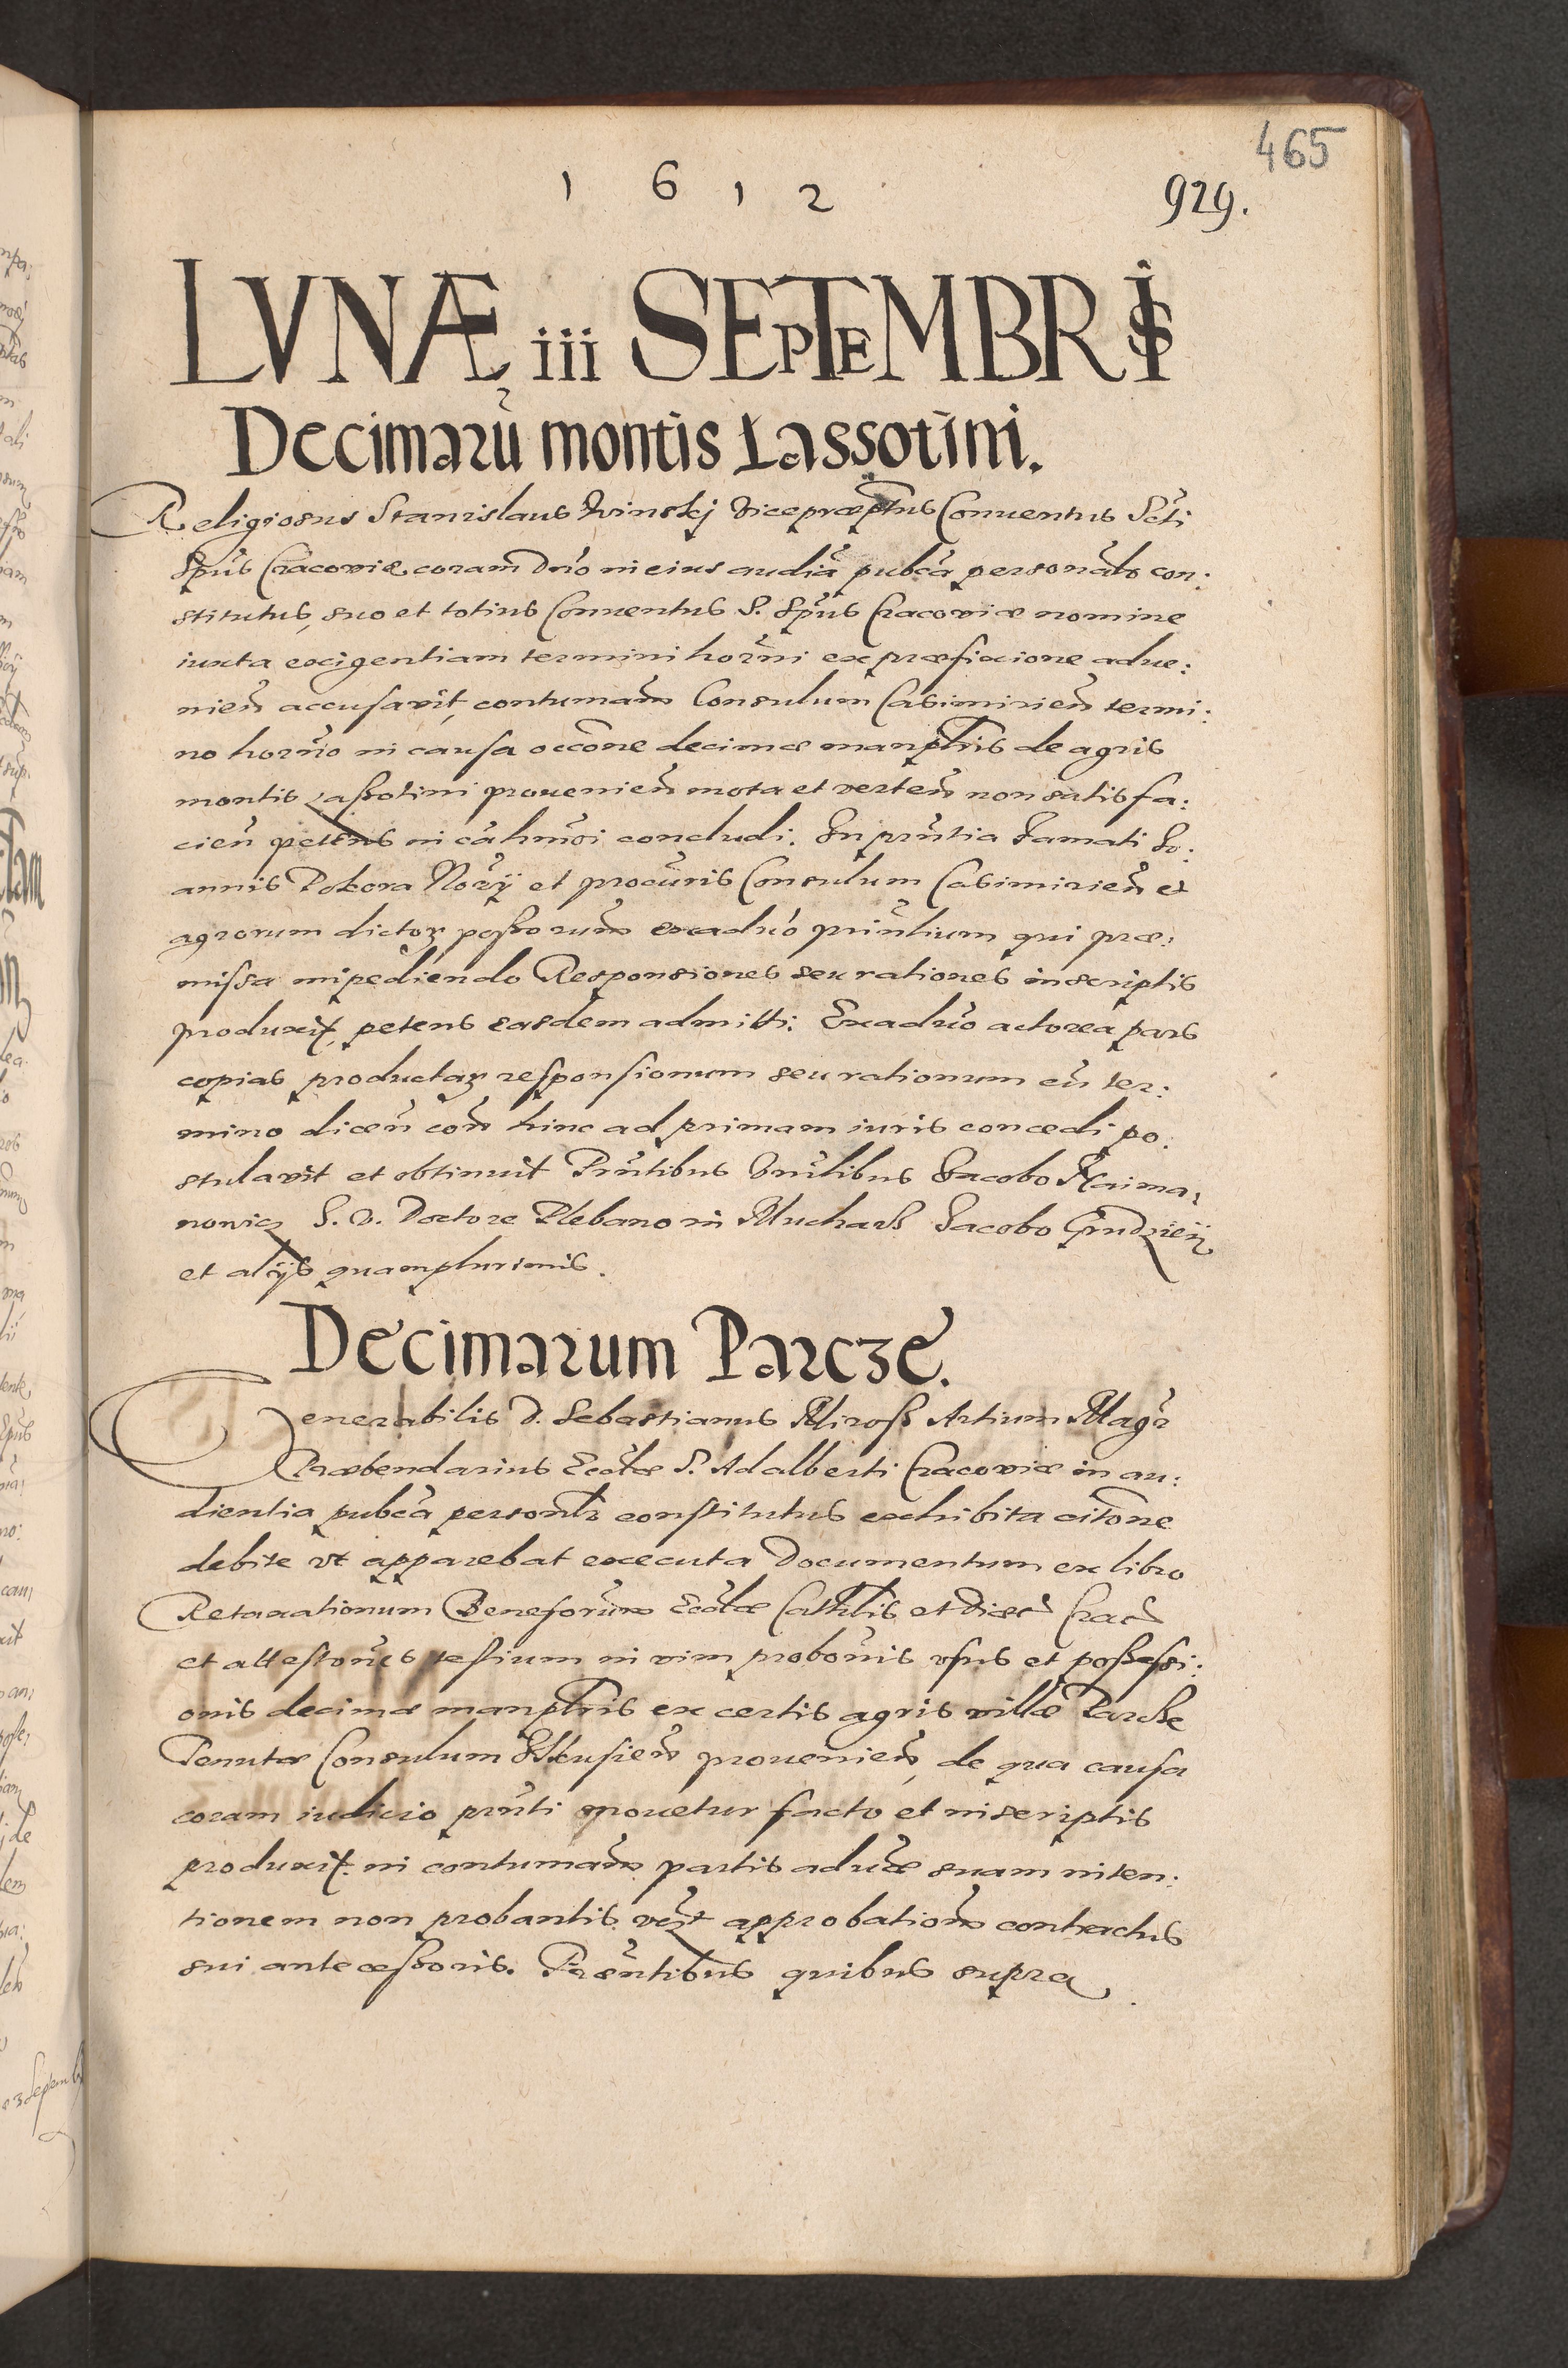 465
1 6 1 2
929.
LVNÆ iii SEPTEMBRIS
Decimarũ montis Lassotini.
Religiosus Stanislaus Kvinskj Vicepræptus Conuentus Scti
Spũs Cracoviæ coram Dño in eius audiã pubca personalr con:
stitutus, suo et totius Conuentus S. Spũs Cracoviæ nomine
iuxta exigentiam termini horñi ex præfixione adue:
nieñ accusavit, contumam Consulum Casimirieñ termi:
no horño in causa occõne decimæ manplris de agris
montis Lassotini prouenieñ mota et verteñ non satisfa:
cieñ petens in cã hmõi concludi. In prñtia Famati Jo:
annis Pokora Norÿ et procuris Consulum Casimirieñ et
agrorum dictoꝝ possorum exaduó prñtium qui præ:
missa impediendo Responsiones seu rationes in scriptis
produxit, petens easdem admitti: Exaduó actorea pars
copias productaꝝ responsionum seu rationum cũ ter:
mino diceñ coñ hinc ad primam iuris concedi po:
stulavit et obtinuit Prñtibus Vnlibus Jacobo Naima,
nowicz S. D. Doctore Plebano in Mucharz Jacobo Grudzień
et alijs quamplurimis.
Decimarum Parcze.
Venerabilis D. Sebastianus Mirosz Artium Magr
Præbendarius Ecclæ S. Adalberti Cracoviæ in au:
dientia pubca personlr constitutus exhibita citõne
debite vt apparebat executa Documentum ex libro
Retaxationum Beneforum Ecclæ Cathlis et Diæc Crac
et attestoñes testium in vim proboñis vsus et possessi:
onis decimæ manplris ex certis agris villæ Parcze
Tenutæ Consulum Ilkusieñ prouenieñ, de qua causa
coram iudicio prñti mouetur facto et in scriptis
produxit. in contumam partis aduæ suam inten:
tionem non probantis approbationem contractus
sui antecessoris. Præsentibus quibus supra.